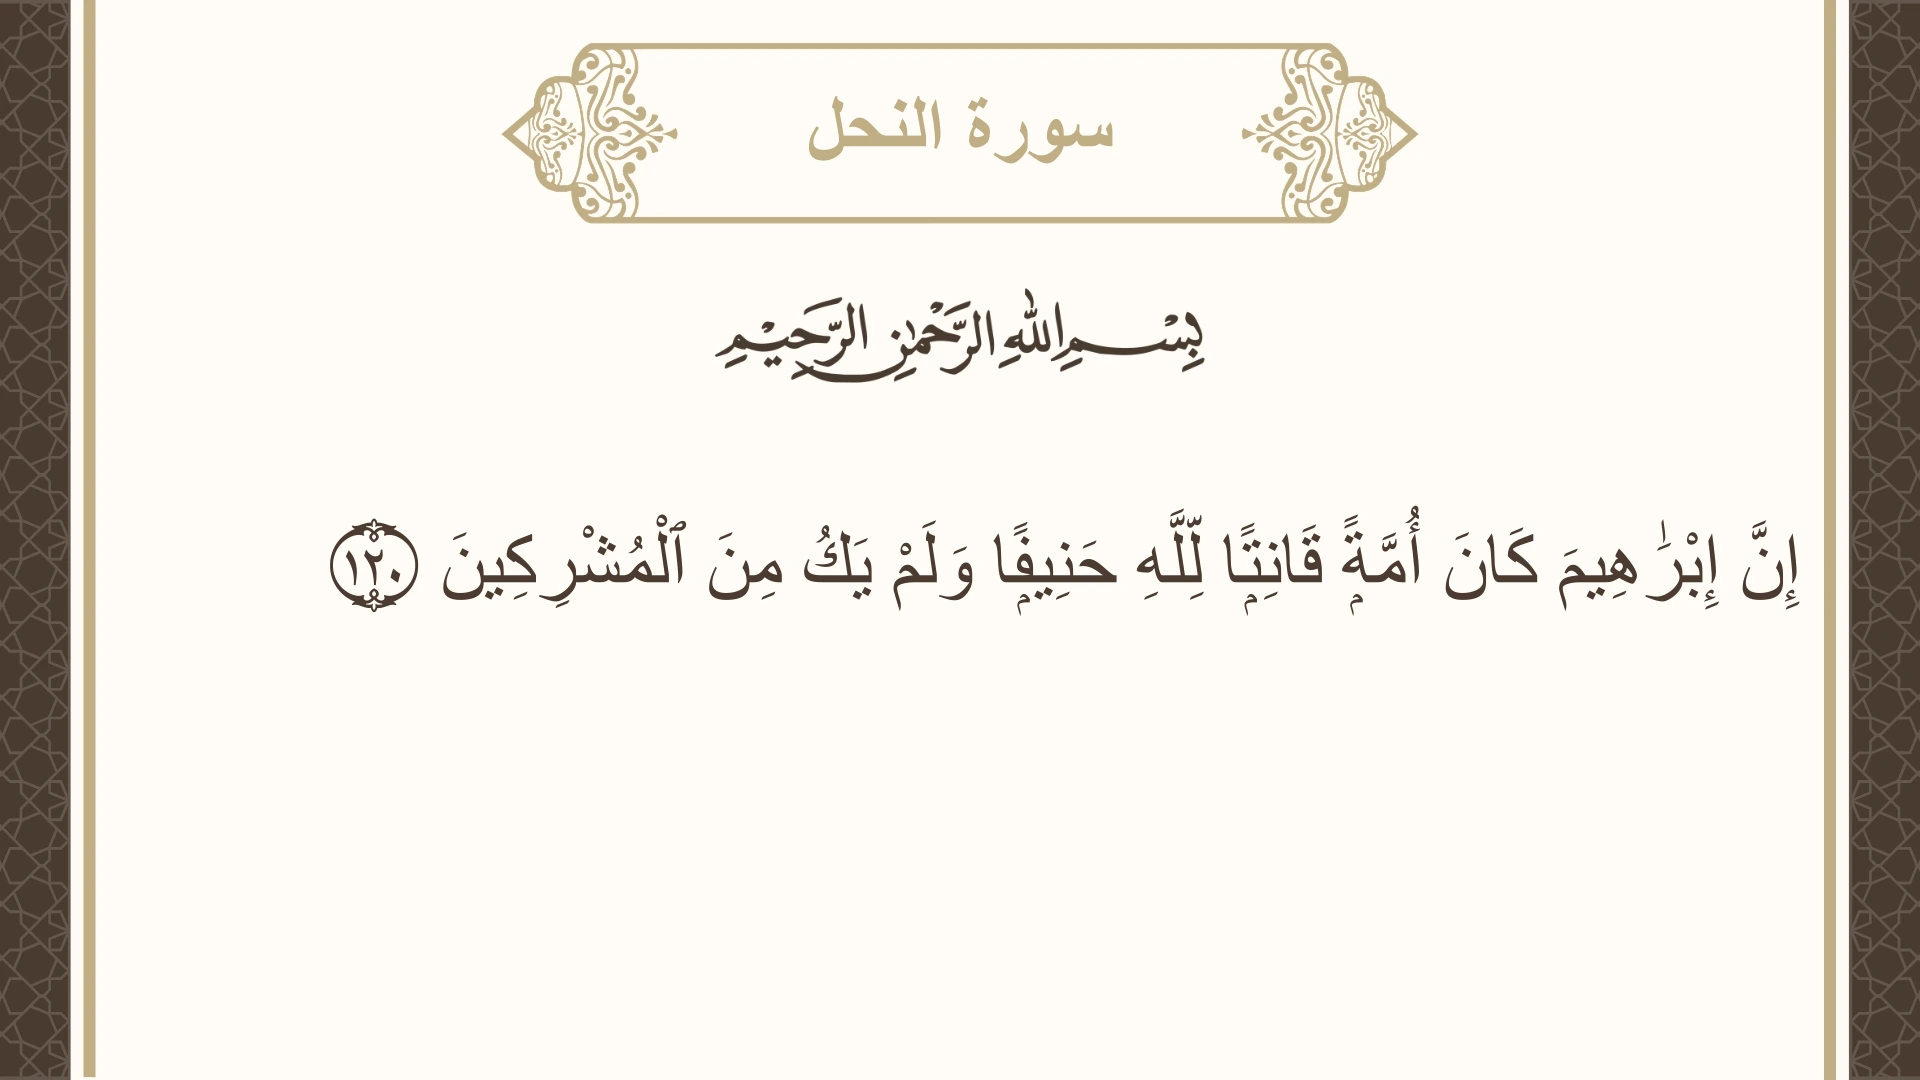 سورة النحل
بِسْمِ اللهِ الرَّحْمٰنِ الرَّحِيْمِ
إِنَّ إِبْرَٰهِيمَ كَانَ أُمَّةًۭ قَانِتًۭا لِّلَّهِ حَنِيفًۭا وَلَمْ يَكُ مِنَ ٱلْمُشْرِكِينَ ١٢٠